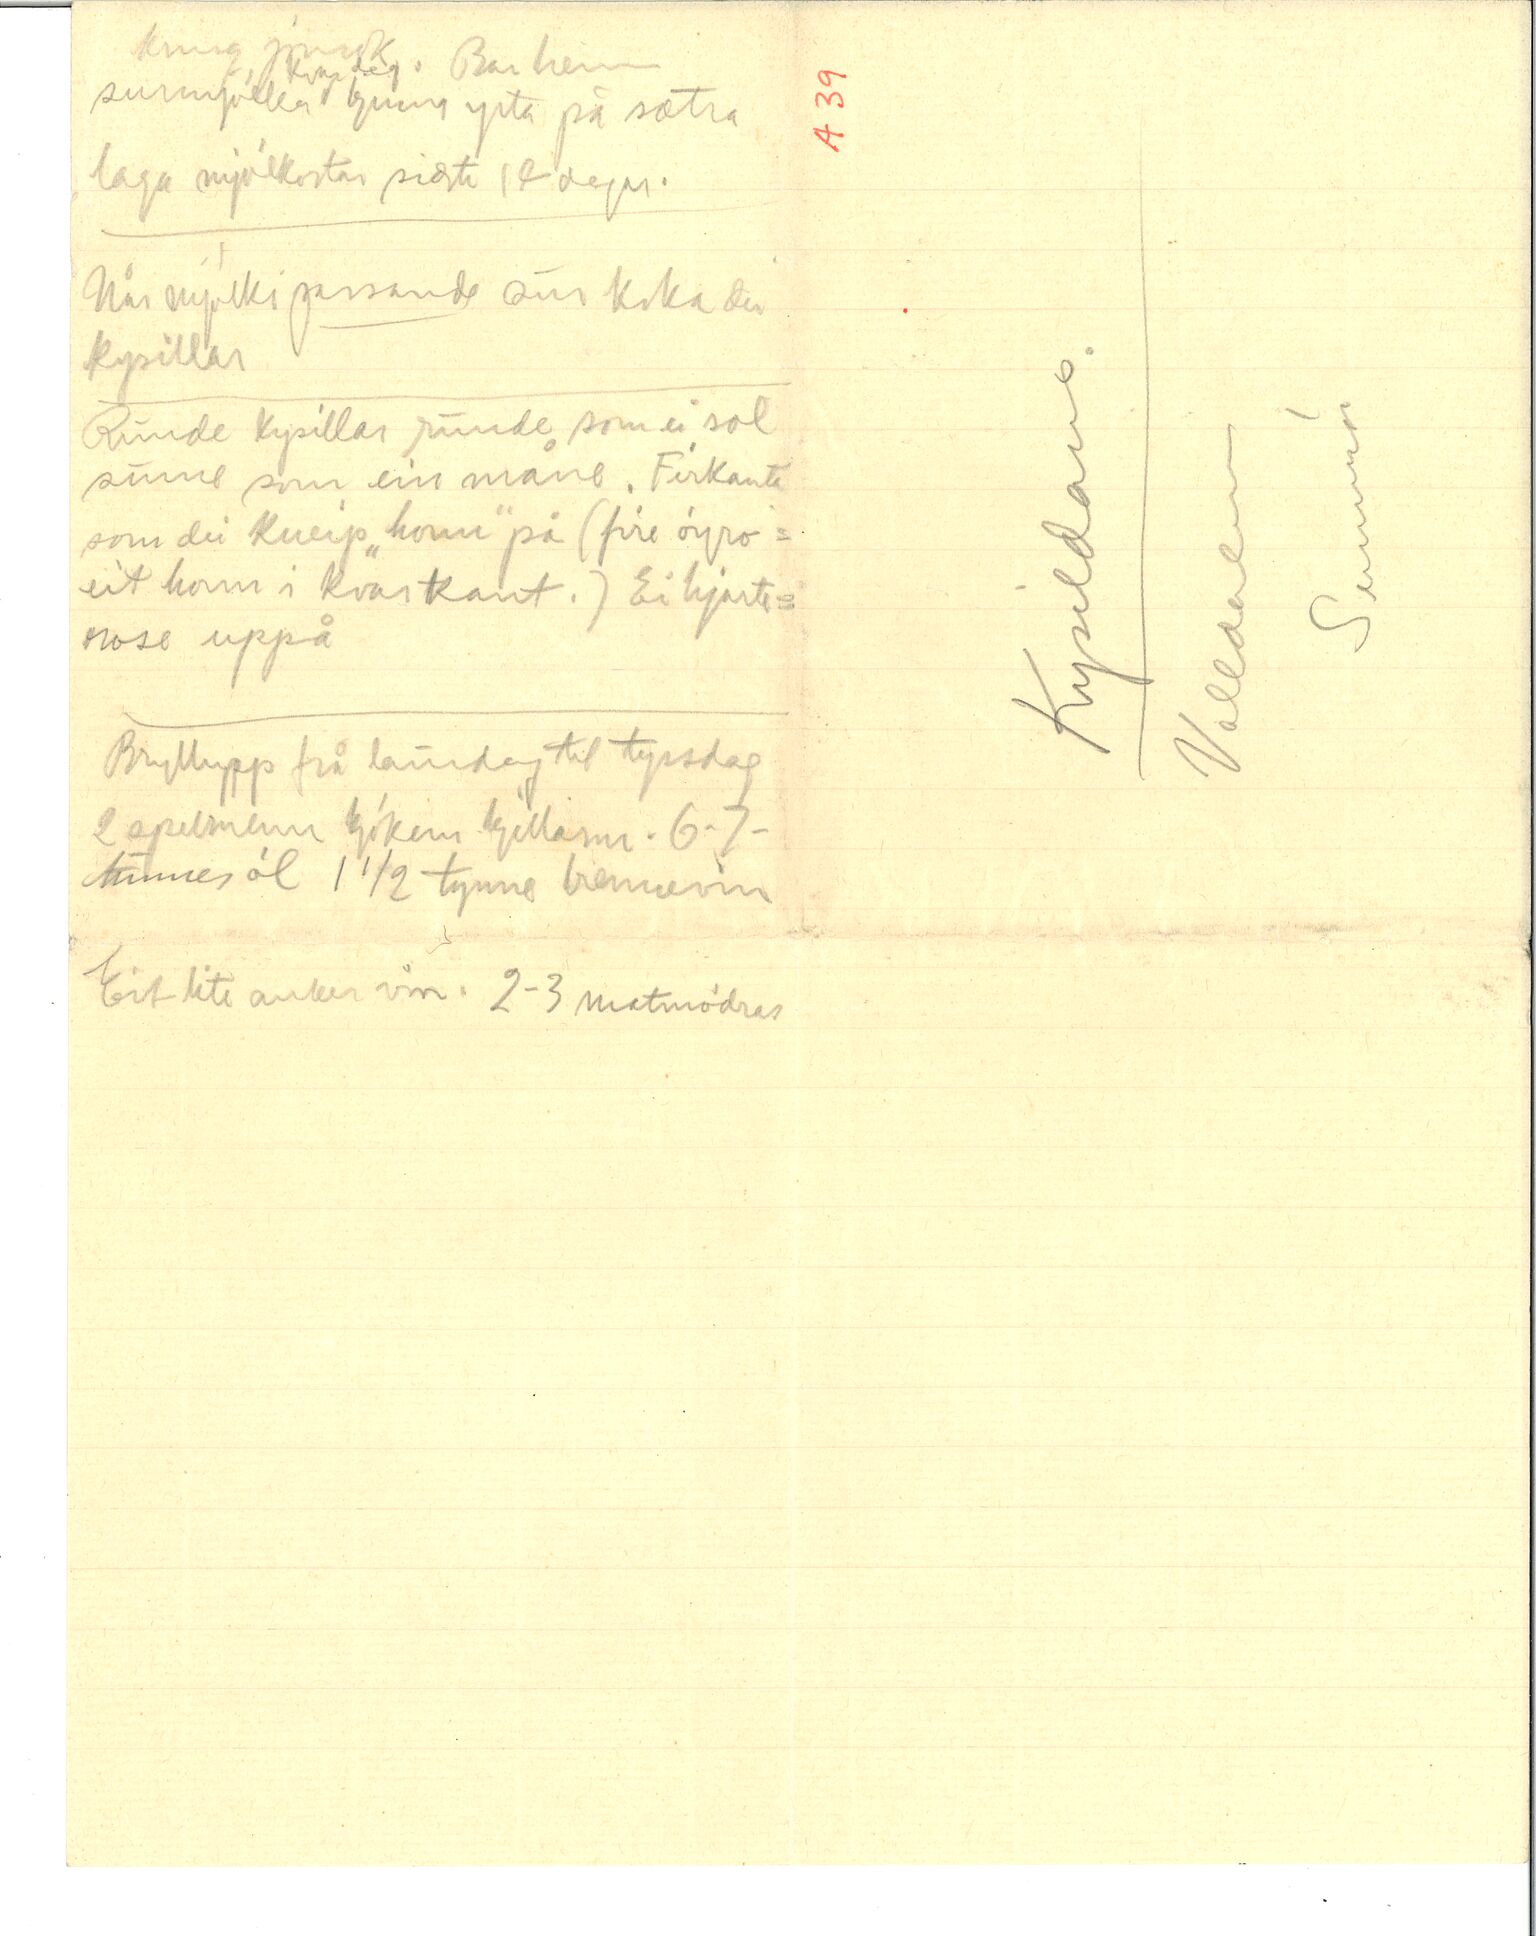 kring jonsok
kvar dag. Bar heim
surmjólka ysta på sætra
laga mjólkostar siste 14 dagar.
Når mjólki passande sur koka dei
kysillar
Runde kysillar runde som ei sol
sume som ein måne. Firkanta
som dei kneip „horn" på (fire óyro =
eit horn i kvar kant.) Ei hjarte=
rose uppå
Bryllupp frå laurdag til tysdag
2 spelmenn kjókem. kjellarm. 6-7-
tunner ól 1 1/2 tynne brennevin
Eit lite anker vin. 2-3 matmódrar
A 39
Kysildans.
Valldalen
Sunnmór